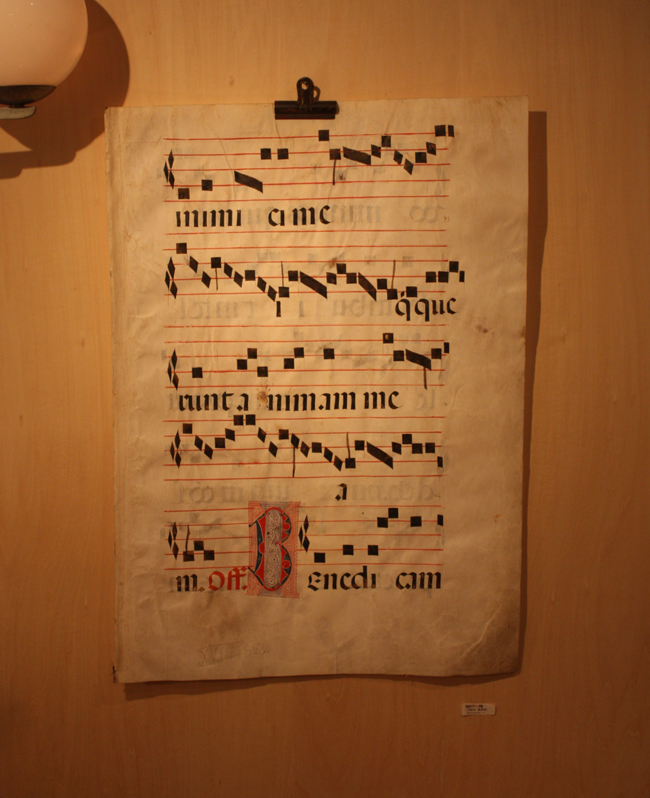 inimi ci me
i q̃que
runt a nimam me
a
m. Off. Benedi cam